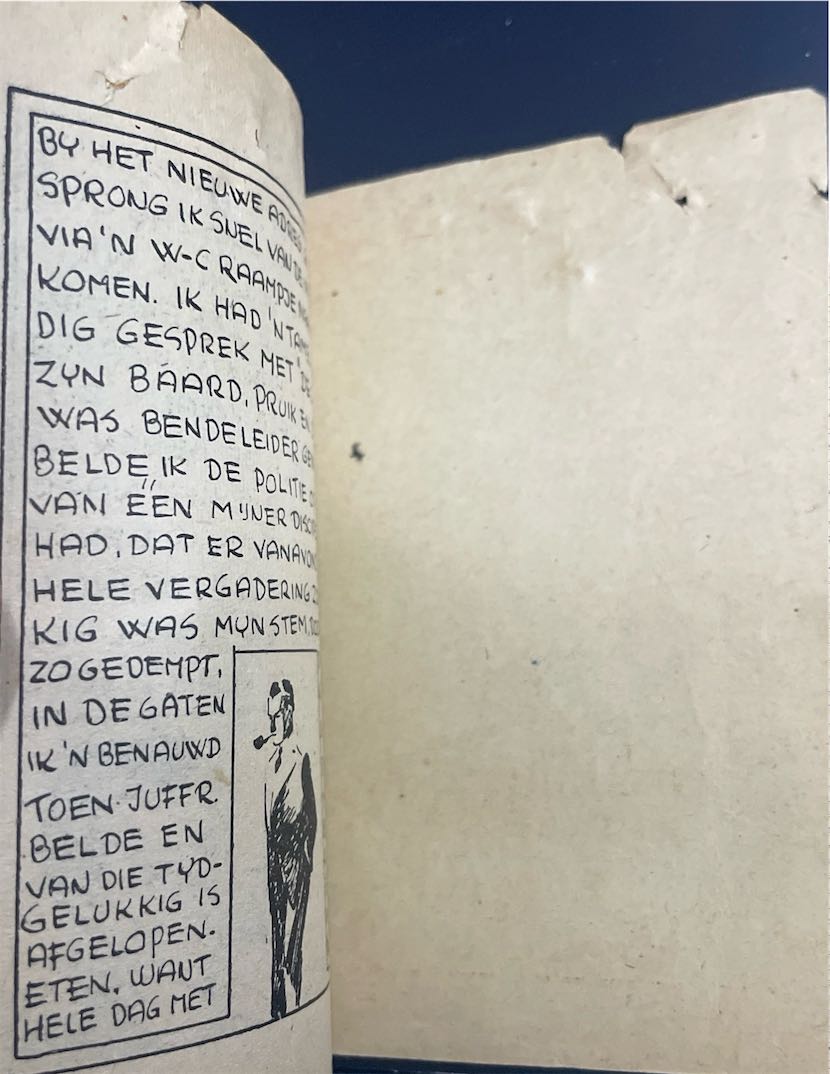 BY HET NIEUWE
SPRONG IK SNEL VAN DE
VIA 'N W-C RAAMPJE
KOMEN. IK HAD 'N
DIG GESPREK MET 'DE
ZYN BAARD, PRUIK EN
WAS BENDELEIDER
BELDE IK DE POLITIE
VAN ÉÉN MIJNER
HAD, DAT ER
HELE VERGADERING
KIG WAS MYN STEM,
ZO GEDEMPT,
IN DE GATEN
IK 'N BENAUWD
TOEN JUFFR.
BELDE EN
VAN DIE TYD-
GELUKKIG IS
AFGELOPEN.
ETEN, WANT
HELE DAG MET